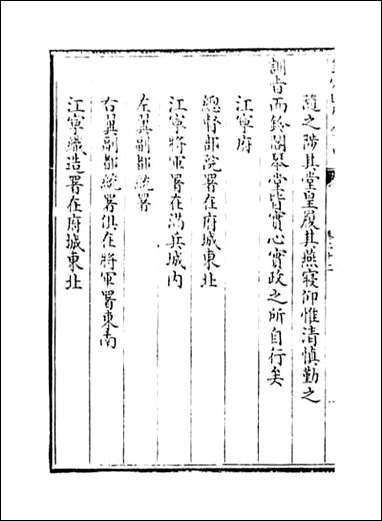 隨之陟其堂皇履其燕寢仰惟清慎勤之
訓旨而鈴閣琴堂皆實心實政之所自行矣
江寧府
總督部院署在府城東北
江寧將軍署在滿兵城內
左翼副都統署
右翼副都統署俱在將軍署東南
江寧織造署在府城東北